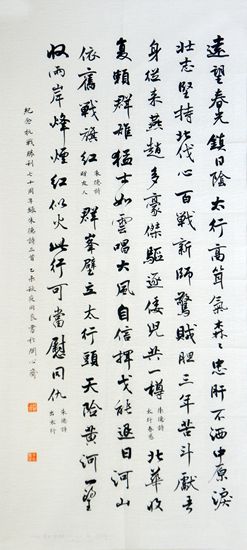 遠望春光鎮日陰太行高聳氣森森忠肝不洒中原淚
壯志堅持北伐心百戰新師驚賊膽三年苦斗獻吾
身從來燕趙多豪傑驅逐倭兒共一樽 朱德詩太行春感 北華收
復賴群雄猛士如雲唱大風自信揮戈能退日河山
依舊戰旗紅 朱德詩贈友人 群峯壁立太行頭天險黃河一望
收兩岸烽煙紅似火此行可當慰同仇 朱德詩出太行
紀念抗戰勝利七十周年錄朱德詩三首乙未秋良書於開心齋